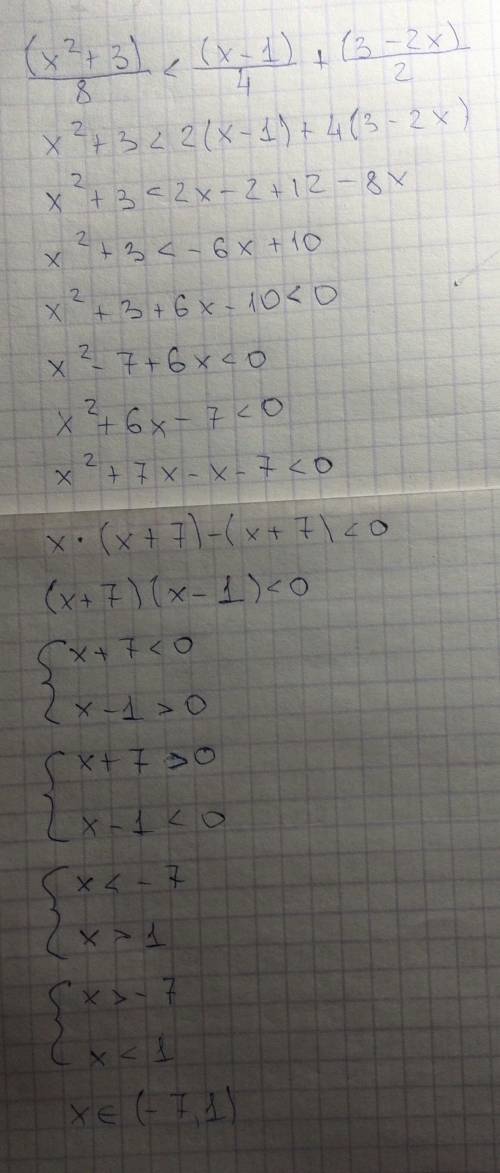 (x²+3)/8 < (x-1)/4 + (3-2x)/2
x²+3<2(x-1)+4(3-2x)
x²+3<2x-2+12-8x
x²+3<-6x+10
x²+3+6x-10<0
x²-7+6x<0
x²+6x-7<0
x²+7x-x-7<0
x·(x+7)-(x+7)<0
(x+7)(x-1)<0
{x+7<0
x-1>0
{x+7>0
x-1<0
{x<-7
x>1
{x>-7
x<1
x∈(-7,1)